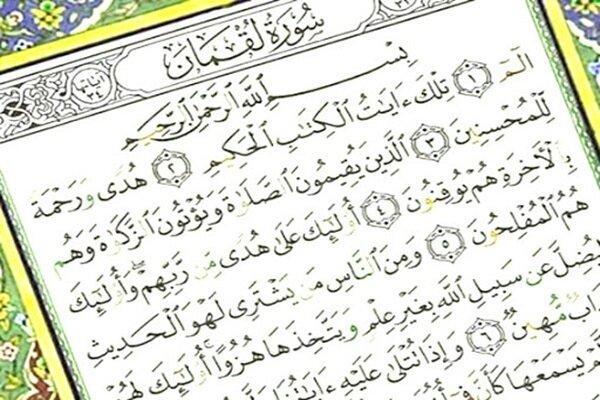 سُورَةُ لُقْمَانَ
بِسْمِ ٱللَّهِ ٱلرَّحْمَٰنِ ٱلرَّحِيمِ
الٓمٓ ١ تِلْكَ ءَايَٰتُ ٱلْكِتَٰبِ ٱلْحَكِيمِ ٢ هُدًى وَرَحْمَةً
لِّلْمُحْسِنِينَ ٣ ٱلَّذِينَ يُقِيمُونَ ٱلصَّلَوٰةَ وَيُؤْتُونَ ٱلزَّكَوٰةَ وَهُم
بِٱلْأَخِرَةِ هُمْ يُوقِنُونَ ٤ أُو۟لَٰٓئِكَ عَلَىٰ هُدًى مِّن رَّبِّهِمْ وَأُو۟لَٰٓئِكَ
هُمُ ٱلْمُفْلِحُونَ ٥ وَمِنَ ٱلنَّاسِ مَن يَشْتَرِى لَهْوَ ٱلْحَدِيثِ
يُضِلَّ عَن سَبِيلِ ٱللَّهِ بِغَيْرِ عِلْمٍ وَيَتَّخِذَهَا هُزُوًا أُو۟لَٰٓئِكَ لَهُمْ
ابٌ مُّهِينٌ ٦ وَإِذَا تُتْلَىٰ عَلَيْهِ ءَايَٰتُنَا
يَسْمَعْهَا كَأَنَّ فِىٓ